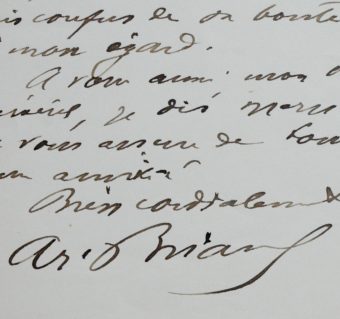 is confus de sa bonté
à mon égard.
A vous aussi mon
je dis merci
vous assure de tou
amitié
Bien cordialement
Ar. Briand